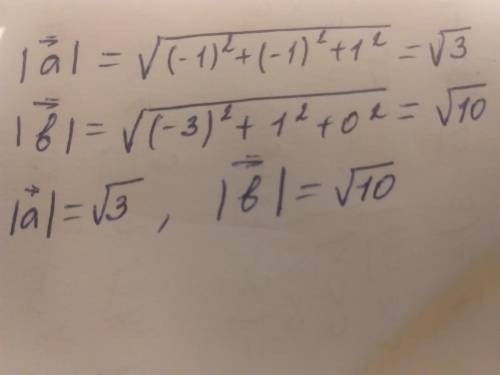 |a⃗| = √((-1)² + (-1)² + 1²) = √3
|b⃗| = √((-3)² + 1² + 0²) = √10
|a⃗| = √3 , |b⃗| = √10